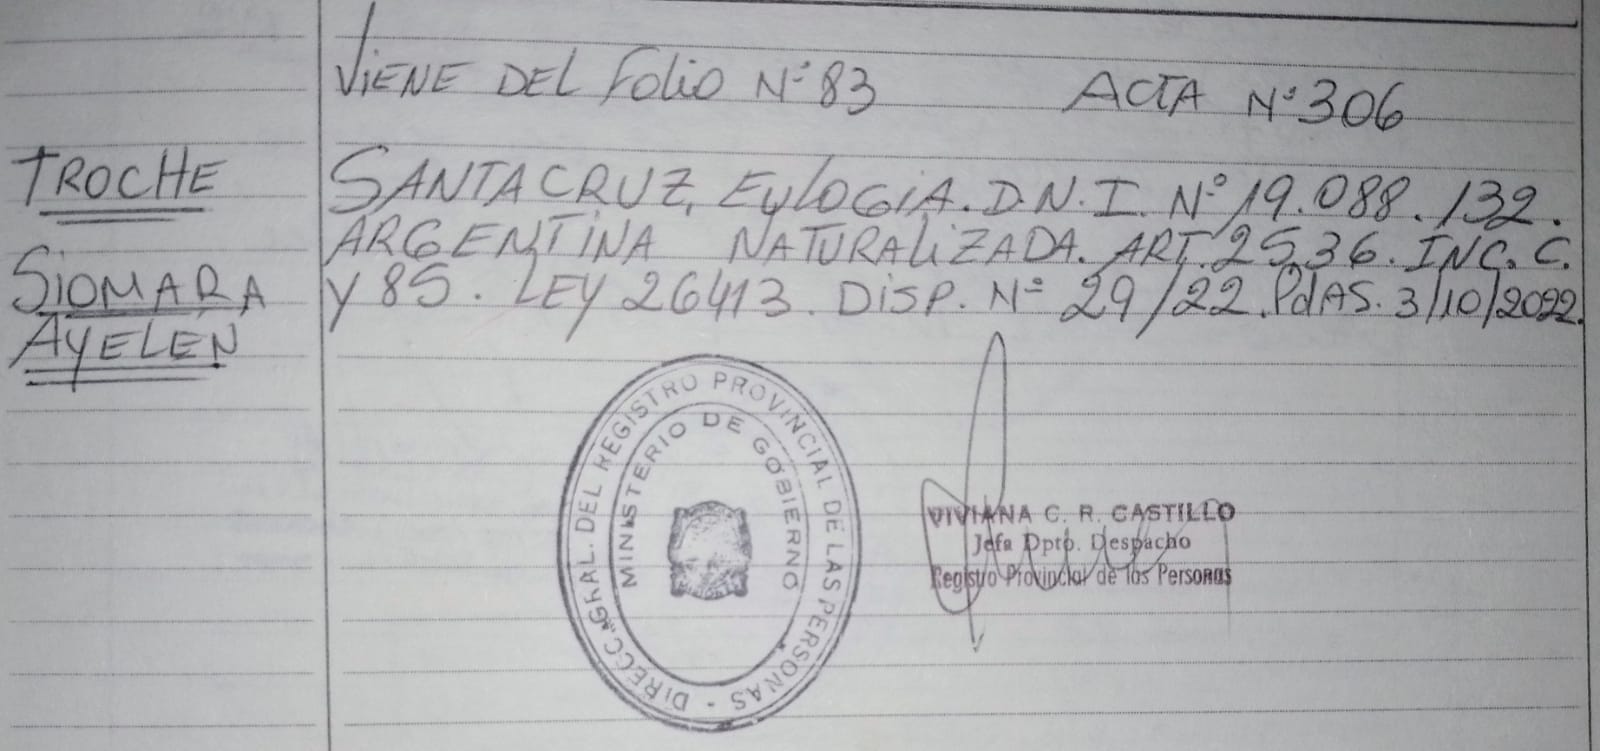 VIENE DEL Folio Nº 83 ACTA Nº 306
TROCHE
SIOMARA
AYELEN
SANTACRUZ, EULOGIA. D.N.I. Nº 19.088.132.
ARGENTINA NATURALIZADA. ART. 25,36. INC. C.
Y 85. LEY 26413. DISP. Nº 29/22. PdAS. 3/10/2022.
DIRECC. GRAL. DEL REGISTRO PROVINCIAL DE LAS PERSONAS -
MINISTERIO DE GOBIERNO
VIVIANA C. R. CASTILLO
Jefa Dpto. Despacho
Registro Provincial de las Personas